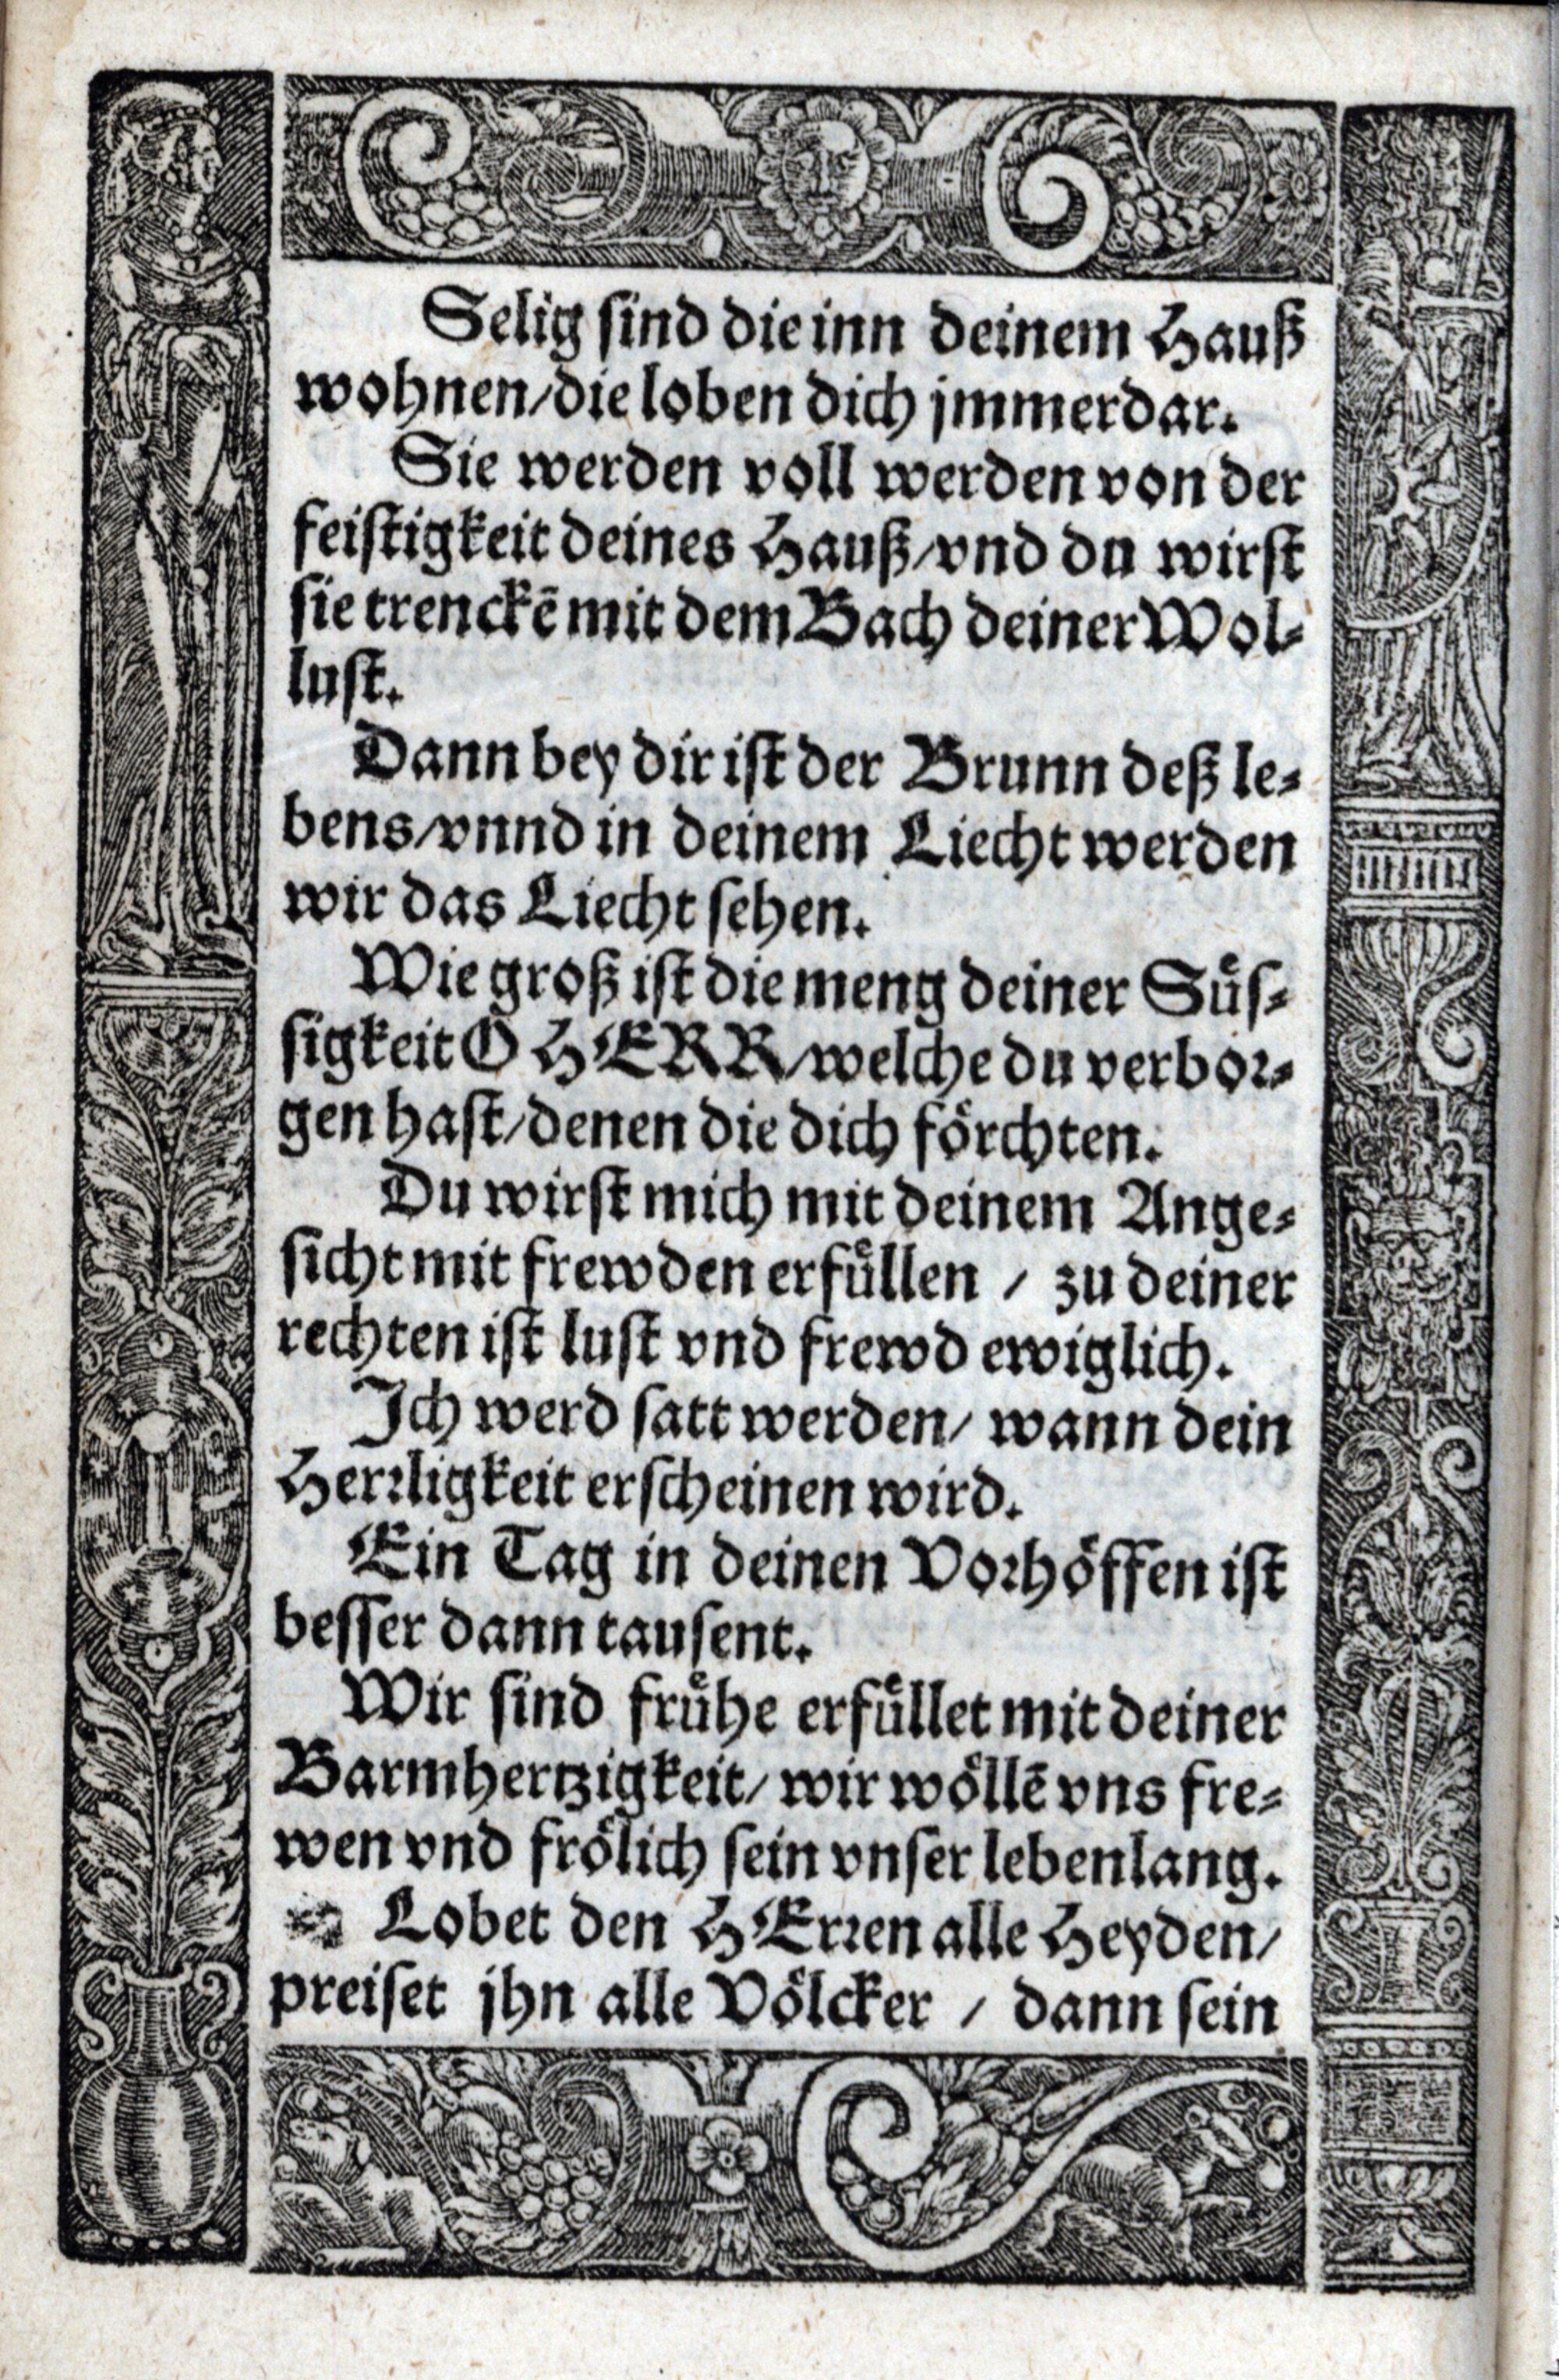 Selig sind die inn deinem Hauß
wohnen/die loben dich jmmerdar.
Sie werden voll werden von der
feistigkeit deines Hauß/vnd du wirst
sie trenckẽ mit dem Bach deiner Wol⸗
lust.
Dann bey dir ist der Brunn deß le⸗
bens/vnnd in deinem Liecht werden
wir das Liecht sehen.
Wie groß ist die meng deiner Suͤs⸗
sigkeit O HERR/welche du verbor⸗
gen hast/denen die dich foͤrchten.
Du wirst mich mit deinem Ange⸗
sicht mit frewden erfuͤllen / zu deiner
rechten ist lust vnd frewd ewiglich.
Ich werd satt werden/ wann dein
Herrligkeit erscheinen wird.
Ein Tag in deinen Vorhoͤffen ist
besser dann tausent.
Wir sind fruͤhe erfuͤllet mit deiner
Barmhertzigkeit/ wir woͤllẽ vns fre⸗
wen vnd froͤlich sein vnser lebenlang.
Lobet den HErren alle Heyden/
preiset jhn alle Voͤlcker / dann sein